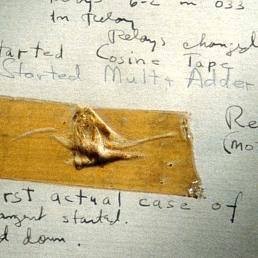 6-2 in 033
In Relay
Relays changed
tarted Cosine Tape
Started Mult+ Adder
Re
(mo
rst actual case of
angent started.
d down.